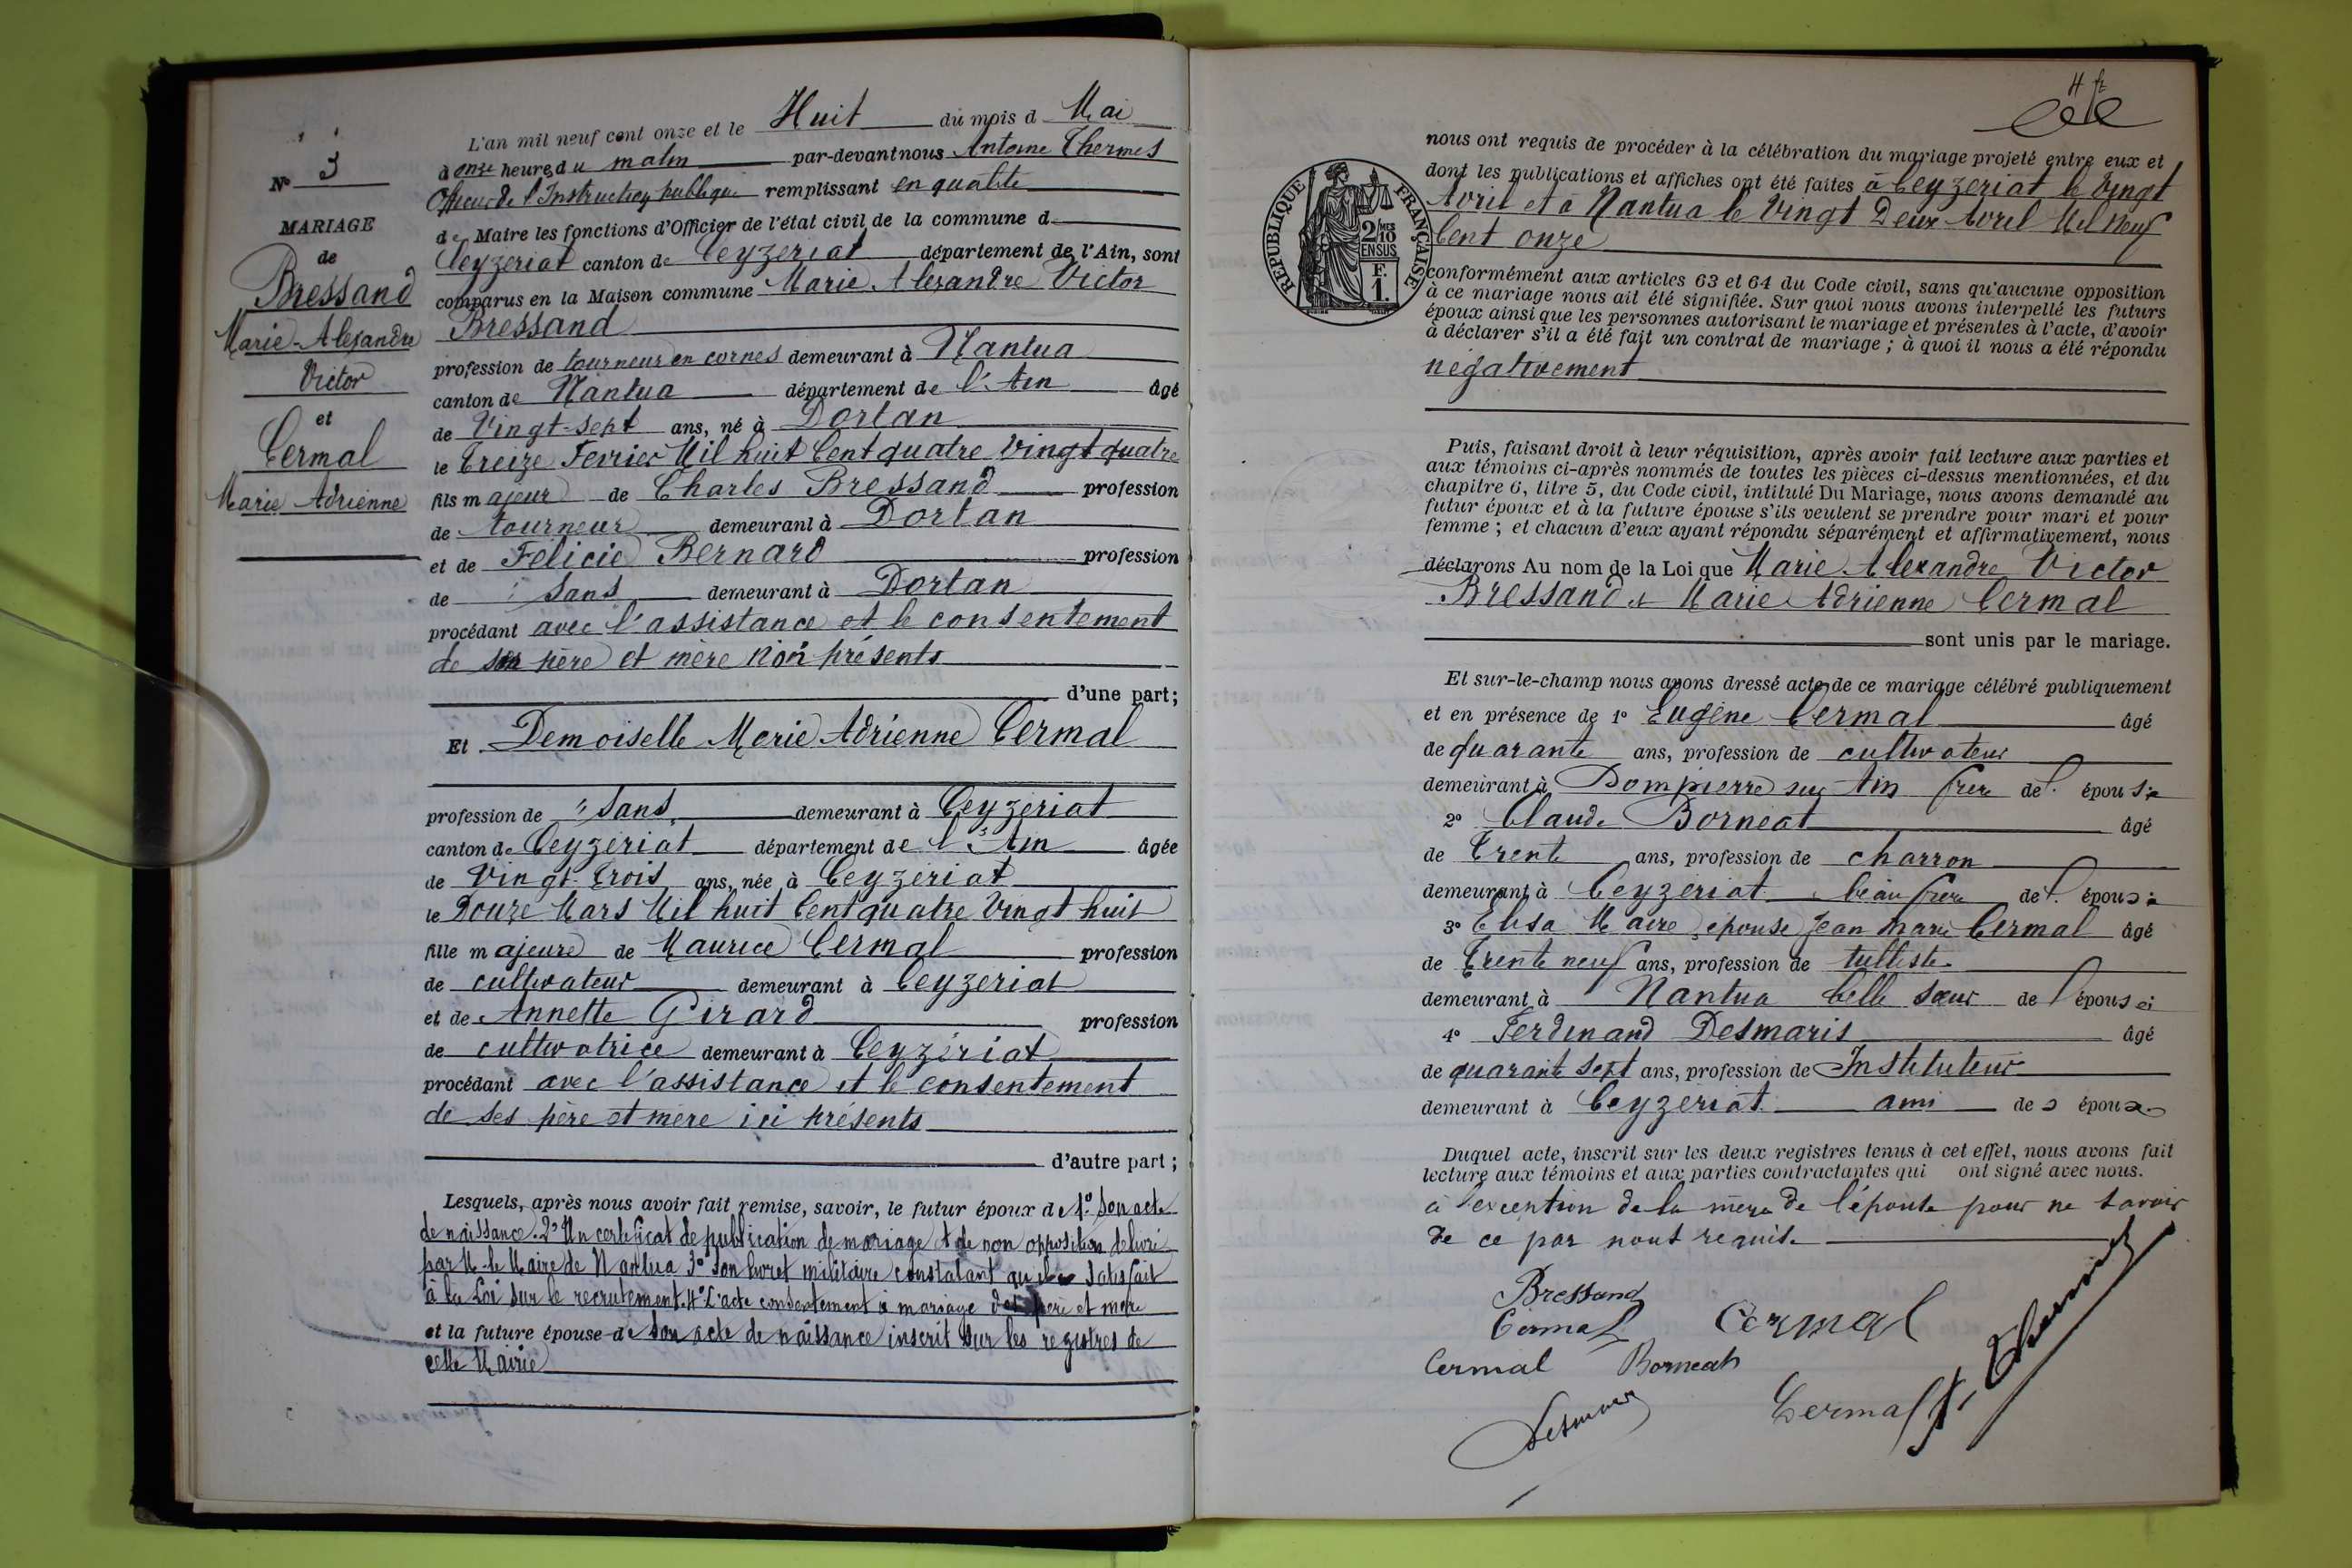 N° 3
MARIAGE
de
Bressand
Marie Alexandre
Victor
et
Cermal
Marie Adrienne
L'an mil neuf cent onze et le Huit du mois d Mai
à onze heures du matin par-devant nous Antoine Thermes
Officier de l'Instruction publique remplissant en qualité
de Maire les fonctions d'Officier de l'état civil de la commune d
Ceyzeriat canton de Ceyzeriat département de l'Ain, sont
comparus en la Maison commune Marie Alexandre Victor
Bressand
profession de tourneur en cornes demeurant à Nantua
canton de Nantua département de l'Ain âgé
de Vingt-sept ans, né à Dortan
le Treize Fevrier Mil huit Cent quatre Vingt quatre
fils majeur de Charles Bressand profession
de tourneur demeurant à Dortan
et de Felicie Bernard profession
de sans demeurant à Dortan
procédant avec l'assistance et le consentement
de ses père et mère non présents
d'une part;
Et Demoiselle Marie Adrienne Cermal
profession de sans demeurant à Ceyzériat
canton de Ceyzériat département de l'Ain âgée
de Vingt-Trois ans, née à Ceyzériat
le Douze Mars Mil huit Cent quatre Vingt huit
fille majeure de Maurice Cermal profession
de cultivateur demeurant à Ceyzeriat
et de Annette Girard profession
de cultivatrice demeurant à Ceyzériat
procédant avec l'assistance et le consentement
de ses père et mère ici présents
d'autre part;
Lesquels, après nous avoir fait remise, savoir, le futur époux de 1° Son acte
de naissance. 2° Un certificat de publication de mariage et de non opposition delivré
par M. le Maire de Nantua 3° Son livret militaire constatant qu'il a satisfait
à la Loi sur le recrutement. 4° L'acte consentement à mariage des père et mère
et la future épouse de Son acte de naissance inscrit sur les registres de
cette Mairie
RÉPUBLIQUE FRANÇAISE
2/10 MES
EN SUS
F.
1.
nous ont requis de procéder à la célébration du mariage projeté entre eux et
dont les publications et affiches ont été faites à Ceyzeriat le Vingt
Avril et à Nantua le Vingt Deux Avril Mil Neuf
Cent onze
conformément aux articles 63 et 64 du Code civil, sans qu'aucune opposition
à ce mariage nous ait été signifiée. Sur quoi nous avons interpellé les futurs
époux ainsi que les personnes autorisant le mariage et présentes à l'acte, d'avoir
à déclarer s'il a été fait un contrat de mariage; à quoi il nous a été répondu
négativement
Puis, faisant droit à leur réquisition, après avoir fait lecture aux parties et
aux témoins ci-après nommés de toutes les pièces ci-dessus mentionnées, et du
chapitre 6, titre 5, du Code civil, intitulé Du Mariage, nous avons demandé au
futur époux et à la future épouse s'ils veulent se prendre pour mari et pour
femme; et chacun d'eux ayant répondu séparément et affirmativement, nous
déclarons Au nom de la Loi que Marie Alexandre Victor
Bressand et Marie Adrienne Cermal
sont unis par le mariage.
Et sur-le-champ nous avons dressé acte de ce mariage célébré publiquement
et en présence de 1° Eugène Cermal âgé
de quarante ans, profession de cultivateur
demeurant à Dompierre sur Ain frère de l'épouse
2° Claude Borneat âgé
de Trente ans, profession de charron
demeurant à Ceyzeriat beau frère de l'épouse
3° Elisa Maire épouse Jean Marie Cermal âgé
de Trente neuf ans, profession de tulliste
demeurant à Nantua belle sœur de l'épouse
4° Ferdinand Desmaris âgé
de quarante sept ans, profession de Instituteur
demeurant à Ceyzériat ami des époux
Duquel acte, inscrit sur les deux registres tenus à cet effet, nous avons fait
lecture aux témoins et aux parties contractantes qui ont signé avec nous.
à l'exception de la mère de l'épouse pour ne savoir
de ce par nous requise
Bressand
Cermal Cermal
Cermal Borneat
Desmaris Cermal A. Thermes